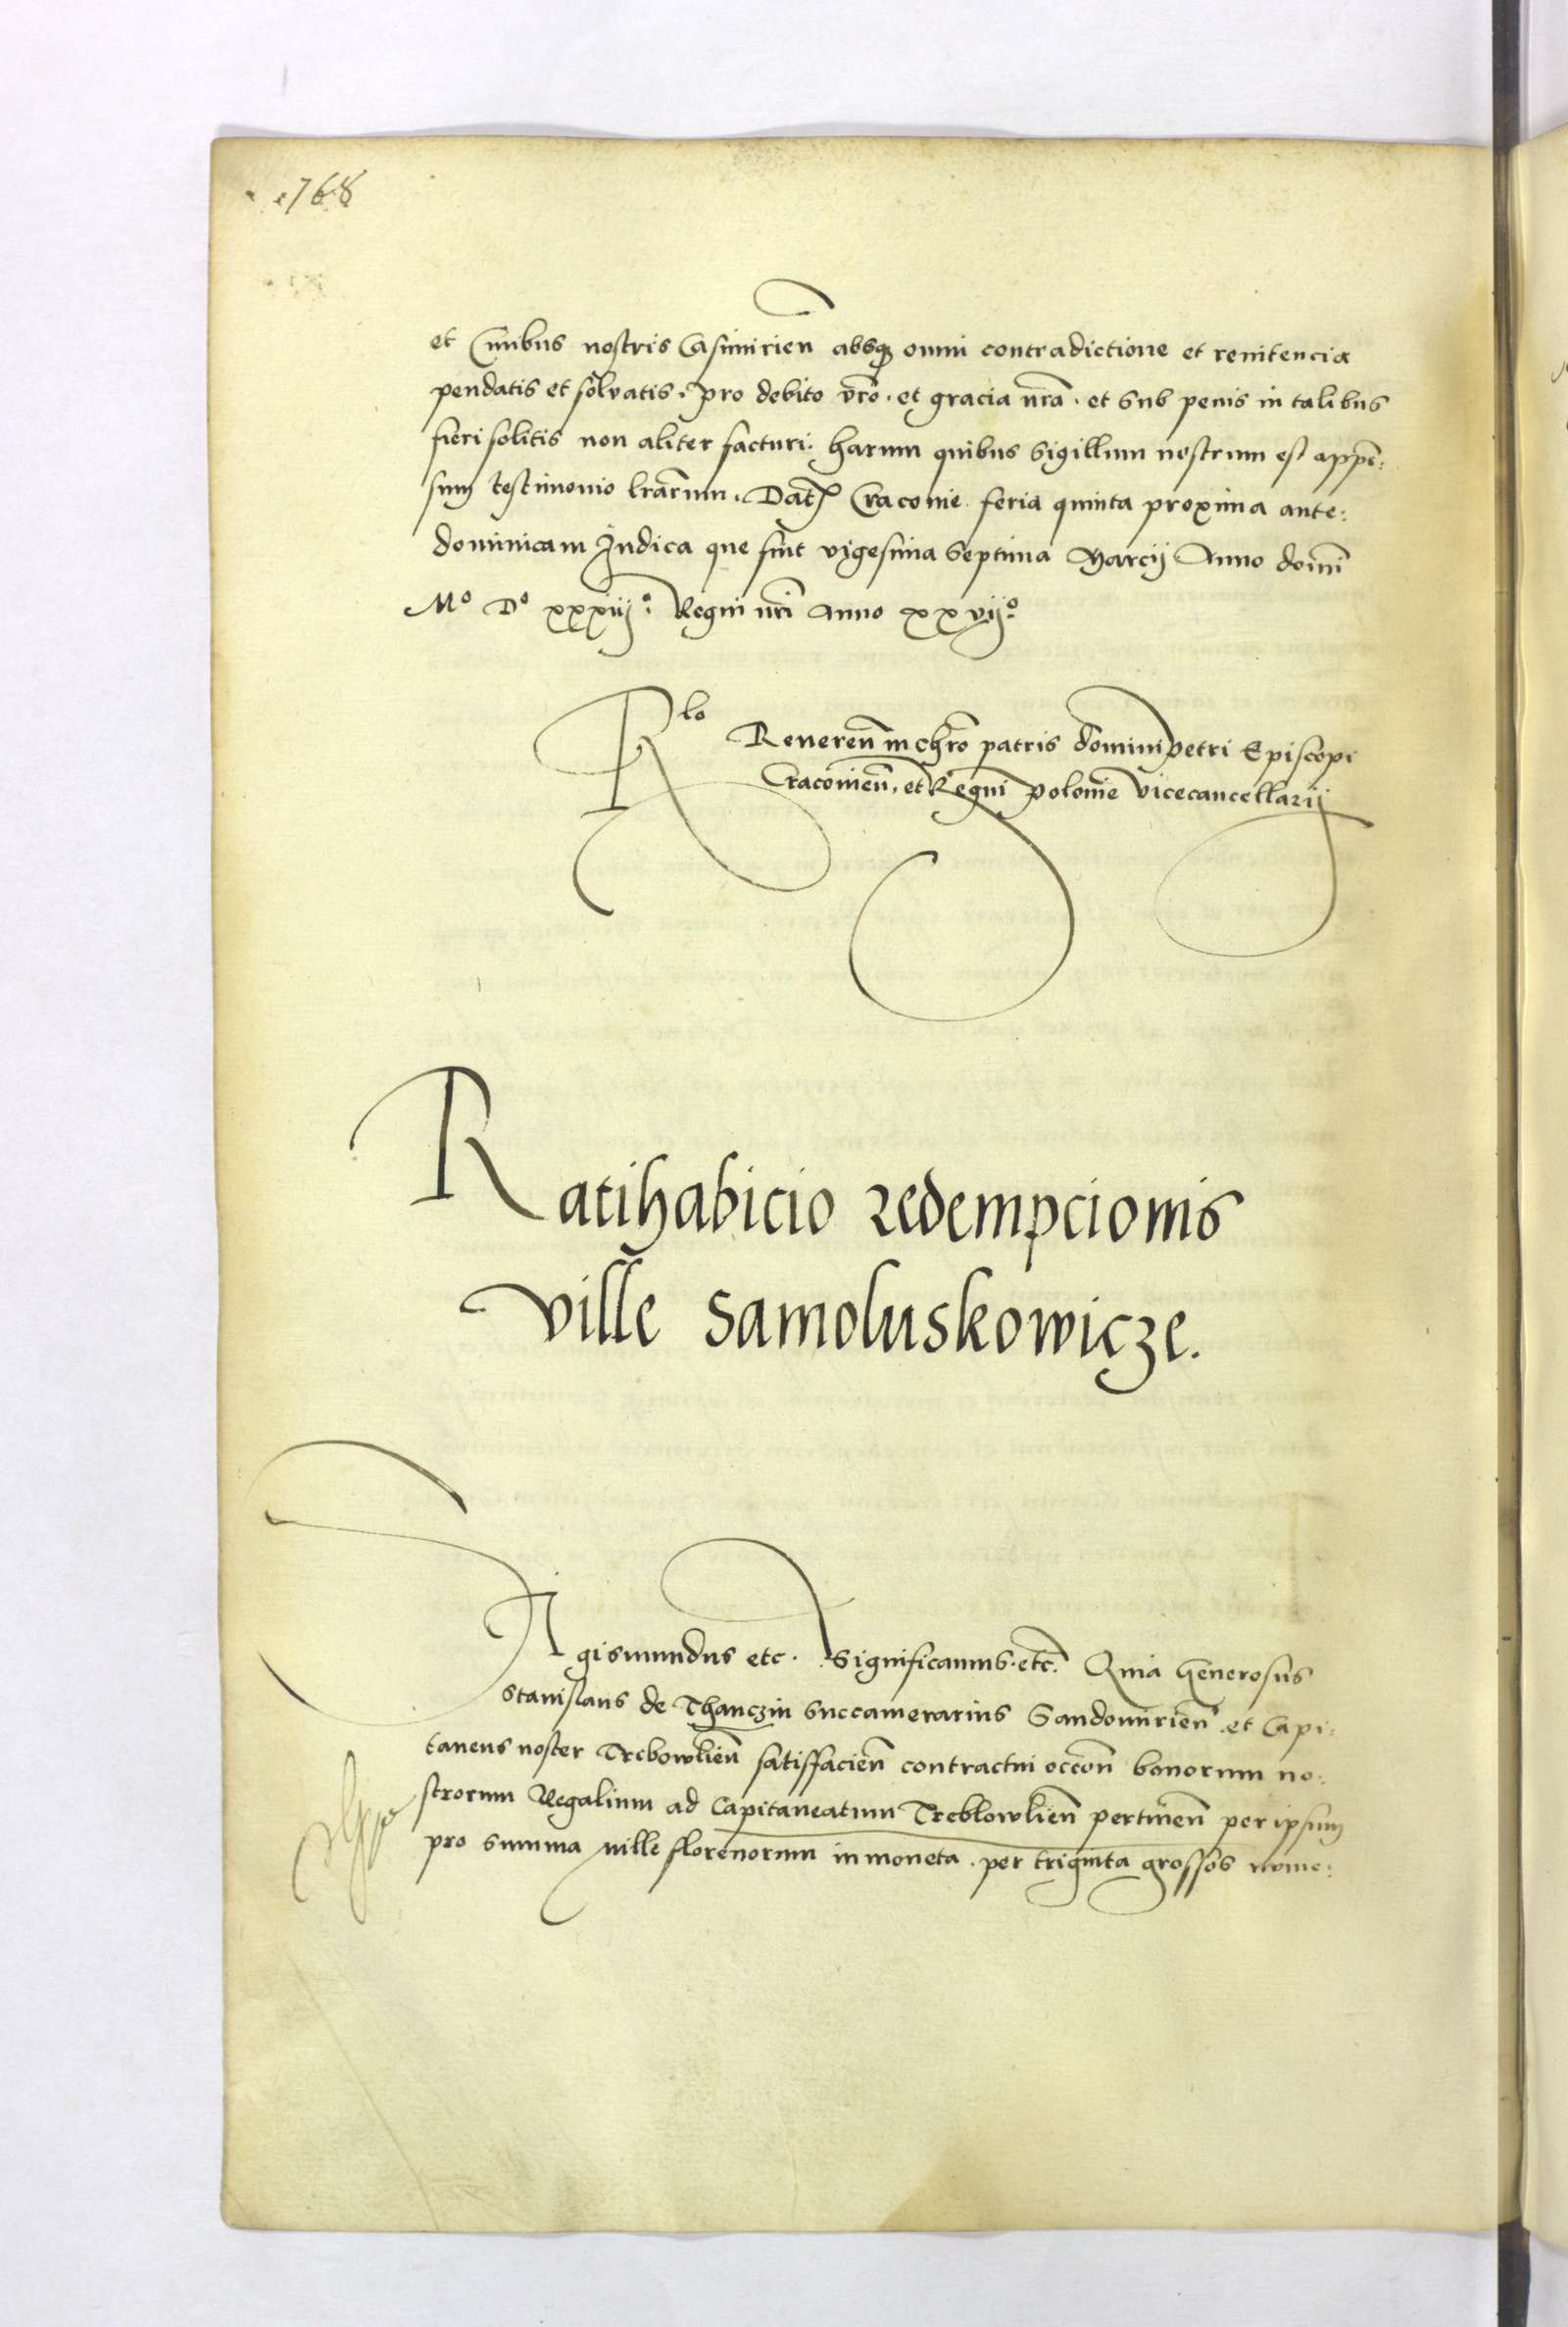 768
et Ciuibus nostris Casimirien̄ absq₃ omni contradictione et renitencia
pendatis et soluatis. pro debito vrō. et gracia nrā. et sub penis in talibus
fieri solitis non aliter facturi. harum quibus Sigillum nostrum est appē:
sum testimonio lrārum. Dat Cracouie feria quinta proxima ante:
dominicam Judica que fuit vigesima Septima Marcij Anno domī
Mº Dº xxxiiijº. Regni nrī Anno xxvijº.
Rlo Reueren̄ in chrō patris domini Petri Episcopi
Cracouien̄. et Regni Polonie Vicecancellarij
Ratihabicio redempcionis
ville Samoluskowicze.
Sigismundus etc. Significamus. etc̄. Quia Generosus
Stanislaus de Thanczin Succamerarius Sandomirien̄. et Capi:
taneus noster Trebowlien̄ satisfacien̄ contractui occōn̄ bonorum no:
strorum Regalium ad Capitaneatum Treblowlien̄ pertinen̄ per ipsum
pro summa mille florenorum in moneta. per triginta grossos nume: